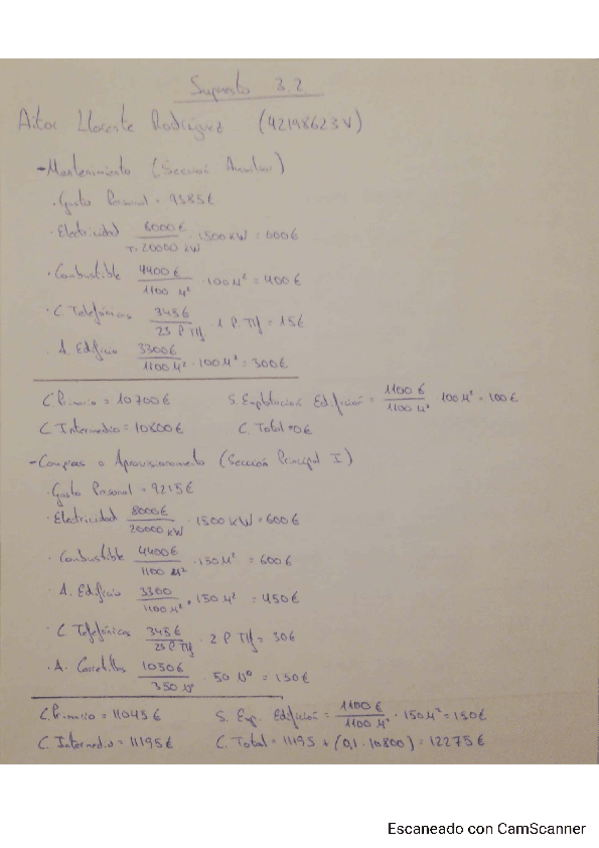 Supuesto 3.2
Aitor Llorente Rodríguez (42198623V)
- Mantenimiento (Sección Auxiliar)
· Gasto Personal = 9385€
· Electricidad 8000€/T. 20000 kW · 1500 kW = 600€
· Combustible 4400€/1100 M² · 100 M² = 400€
· C. Telefónicas 345€/23 P. Tlf. · 1 P. Tlf = 15€
· A. Edificio 3300€/1100 M² · 100 M² = 300€
C. Primario = 10700€ S. Explotación Edificación = 1100 €/1100 M² · 100 M² = 100€
C. Intermedio = 10800€ C. Total = 0€
- Compras o Aprovisionamiento (Sección Principal I)
· Gasto Personal = 9215€
· Electricidad 8000€/20000 kW · 1500 kW = 600€
· Combustible 4400€/1100 M² · 150 M² = 600€
· A. Edificio 3300/1100 M² · 150 M² = 450€
· C. Telefónicas 345€/23 P. Tlf · 2 P. Tlf = 30€
· A. Carretillas 1050€/350 Nº · 50 Nº = 150€
C. Primario = 11045€ S. Exp. Edificación = 1100 €/1100 M² · 150 M² = 150€
C. Intermedio = 11195€ C. Total = 11195 + (0,1 · 10800) = 12275€
Escaneado con CamScanner